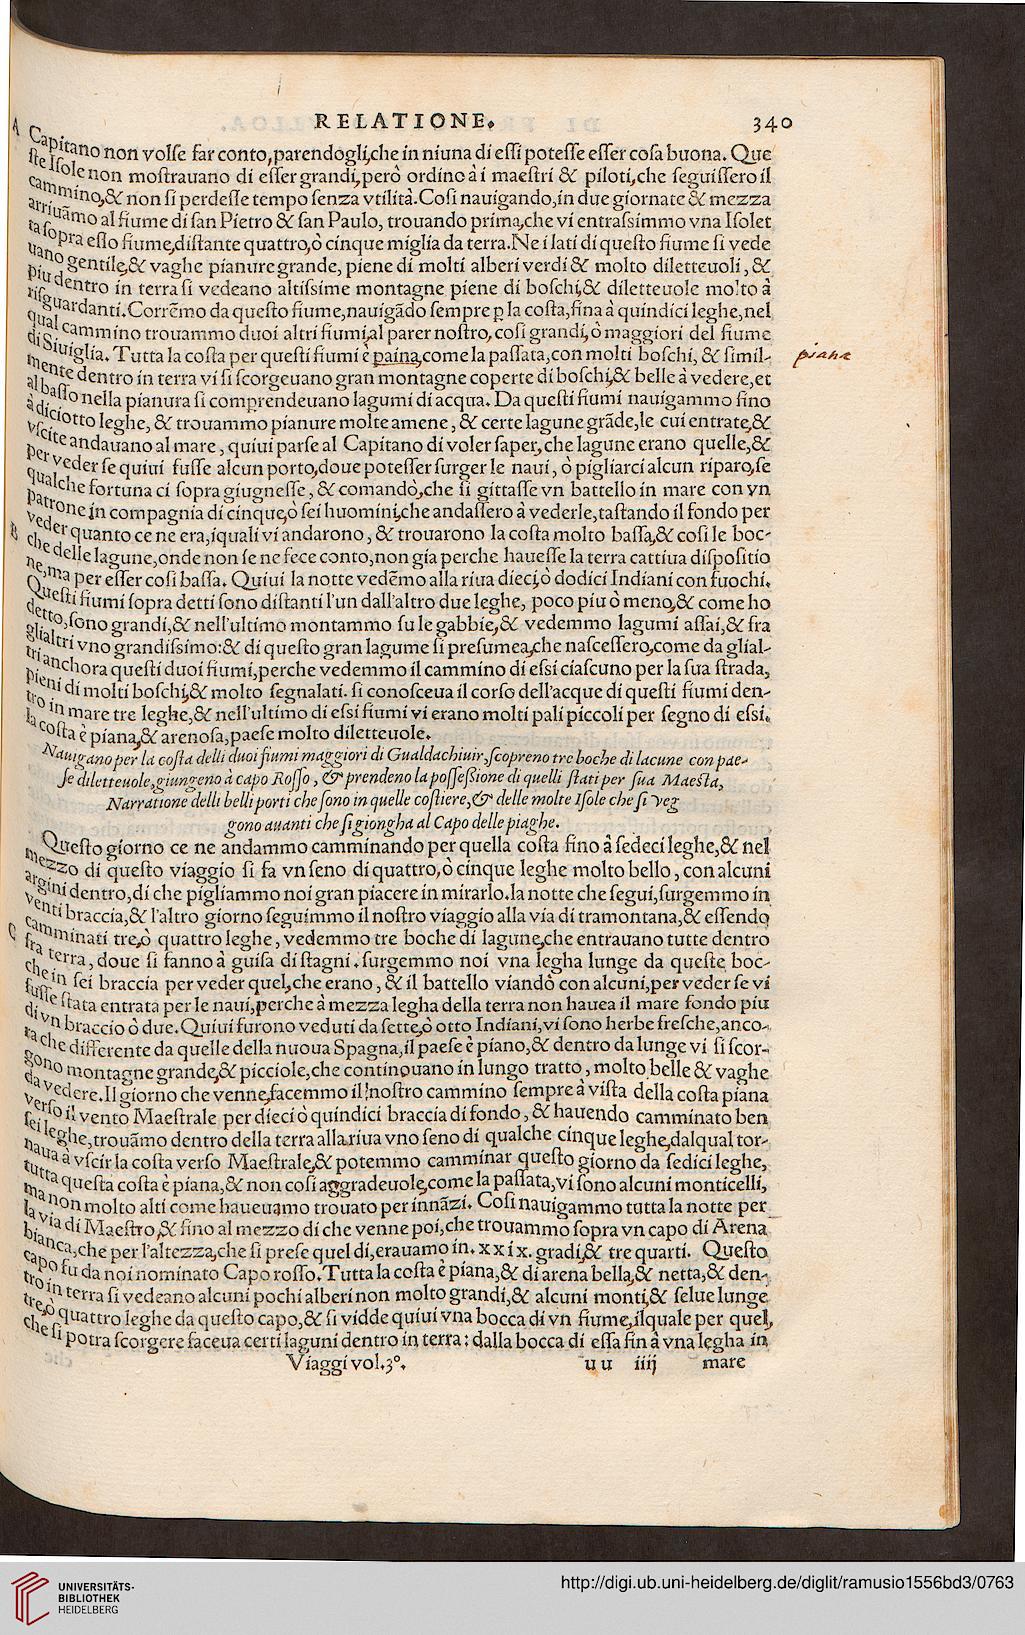 RELATIONE. 340
A Capitano non volſe far conto, parendogli, che in niuna di eſſi poteſſe eſſer coſa buona. Que
ſte Iſole non moſtrauano di eſſer grandi, però ordino à i maeſtri & piloti, che ſeguiſſero il
cammino, & non ſi perdeſſe tempo ſenza vtilità. Coſi nauigando, in due giornate & mezza
arriuãmo al fiume di ſan Pietro & ſan Paulo, trouando prima, che vi entraſsimmo vna Iſolet
ta ſopra eſſo fiume, diſtante quattro, ò cinque miglia da terra. Ne i lati di queſto fiume ſi vede
uano gentile, & vaghe pianure grande, piene di molti alberi verdi & molto diletteuoli, &
piu dentro in terra ſi vedeano altiſsime montagne piene di boſchi, & diletteuole molto à
riſguardanti. Corrẽmo da queſto fiume, nauigãdo ſempre p la coſta, fina à quindici leghe, nel
qual cammino trouammo duoi altri fiumi, al parer noſtro, coſi grandi, ò maggiori del fiume
di Siuiglia. Tutta la coſta per queſti fiumi è paina, come la paſſata, con molti boſchi, & ſimil- piana
mente dentro in terra vi ſi ſcorgeuano gran montagne coperte di boſchi, & belle à vedere, et
al baſſo nella pianura ſi comprendeuano lagumi di acqua. Da queſti fiumi nauigammo fino
à diciotto leghe, & trouammo pianure molte amene, & certe lagune grãde, le cui entrate, &
vſcite andauano al mare, quiui parſe al Capitano di voler ſaper, che lagune erano quelle, &
per veder ſe quiui fuſſe alcun porto, doue poteſſer ſurger le naui, ò pigliarci alcun riparo, ſe
qualche fortuna ci ſopra giugneſſe, & comandò, che ſi gittaſſe vn battello in mare con vn
patrone in compagnia di cinque, ò ſei huomini, che andaſſero à vederle, taſtando il fondo per
B veder quanto ce ne era, i quali vi andarono, & trouarono la coſta molto baſſa, & coſi le boc-
che delle lagune, onde non ſe ne fece conto, non gia perche haueſſe la terra cattiua diſpoſitio
ne, ma per eſſer coſi baſſa. Quiui la notte vedẽmo alla riua dieci, ò dodici Indiani con fuochi.
Queſti fiumi ſopra detti ſono diſtanti l'un dall'altro due leghe, poco piu ò meno, & come ho
detto, ſono grandi, & nell'ultimo montammo ſu le gabbie, & vedemmo lagumi aſſai, & fra
gli altri vno grandiſsimo: & di queſto gran lagume ſi preſumea, che naſceſſero, come da gli al-
tri anchora queſti duoi fiumi, perche vedemmo il cammino di eſsi ciaſcuno per la ſua ſtrada,
pieni di molti boſchi, & molto ſegnalati. ſi conoſceua il corſo dell'acque di queſti fiumi den-
tro in mare tre leghe, & nell'ultimo di eſsi fiumi vi erano molti pali piccoli per ſegno di eſsi.
la coſta è piana, & arenoſa, paeſe molto diletteuole.
Nauigano per la coſta delli duoi fiumi maggiori di Gualdachiuir, ſcopreno tre boche di lacune con pae-
ſe diletteuole, giungeno à capo Roſſo, & prendeno la poſſeſsione di quelli ſtati per ſua Maeſta,
Narratione delli belli porti che ſono in quelle coſtiere, & delle molte Iſole che ſi veg
gono auanti che ſi giongha al Capo delle piaghe.
Queſto giorno ce ne andammo camminando per quella coſta fino à ſedeci leghe, & nel
mezzo di queſto viaggio ſi fa vn ſeno di quattro, ò cinque leghe molto bello, con alcuni
argini dentro, di che pigliammo noi gran piacere in mirarlo. la notte che ſegui, ſurgemmo in
venti braccia, & l'altro giorno ſeguimmo il noſtro viaggio alla via di tramontana, & eſſendo
C camminati tre, ò quattro leghe, vedemmo tre boche di lagune, che entrauano tutte dentro
fra terra, doue ſi fanno à guiſa di ſtagni. ſurgemmo noi vna legha lunge da queſte boc-
che in ſei braccia per veder quel, che erano, & il battello viandò con alcuni, per veder ſe vi
fuſſe ſtata entrata per le naui, perche à mezza legha della terra non hauea il mare fondo piu
di vn braccio ò due. Quiui furono veduti da ſette, ò otto Indiani, vi ſono herbe freſche, anco-
ra che differente da quelle della nuoua Spagna, il paeſe è piano, & dentro da lunge vi ſi ſcor-
gono montagne grande, & picciole, che continouano in lungo tratto, molto belle & vaghe
da vedere. Il giorno che venne, facemmo il noſtro cammino ſempre à viſta della coſta piana
verſo il vento Maeſtrale per dieci ò quindici braccia di fondo, & hauendo camminato ben
ſei leghe, trouãmo dentro della terra alla riua vno ſeno di qualche cinque leghe, dal qual tor-
naua à vſcir la coſta verſo Maeſtrale, & potemmo camminar queſto giorno da ſedici leghe,
tutta queſta coſta è piana, & non coſi aggradeuole, come la paſſata, vi ſono alcuni monticelli,
ma non molto alti come haueuamo trouato per innãzi. Coſi nauigammo tutta la notte per
la via di Maeſtro, & fino al mezzo di che venne poi, che trouammo ſopra vn capo di Arena
bianca, che per l'altezza, che ſi preſe quel di, erauamo in. xxix. gradi, & tre quarti. Queſto
capo fu da noi nominato Capo roſſo. Tutta la coſta è piana, & di arena bella, & netta, & den-
tro in terra ſi vedeano alcuni pochi alberi non molto grandi, & alcuni monti, & ſelue lunge
tre, ò quattro leghe da queſto capo, & ſi vidde quiui vna bocca di vn fiume, ilquale per quel,
che ſi potra ſcorgere faceua certi laguni dentro in terra: dalla bocca di eſſa fin à vna legha in
Viaggi vol. 3°. uu iiij mare
UNIVERSITÄTS-
BIBLIOTHEK
HEIDELBERG
http://digi.ub.uni-heidelberg.de/diglit/ramusio1556bd3/0763